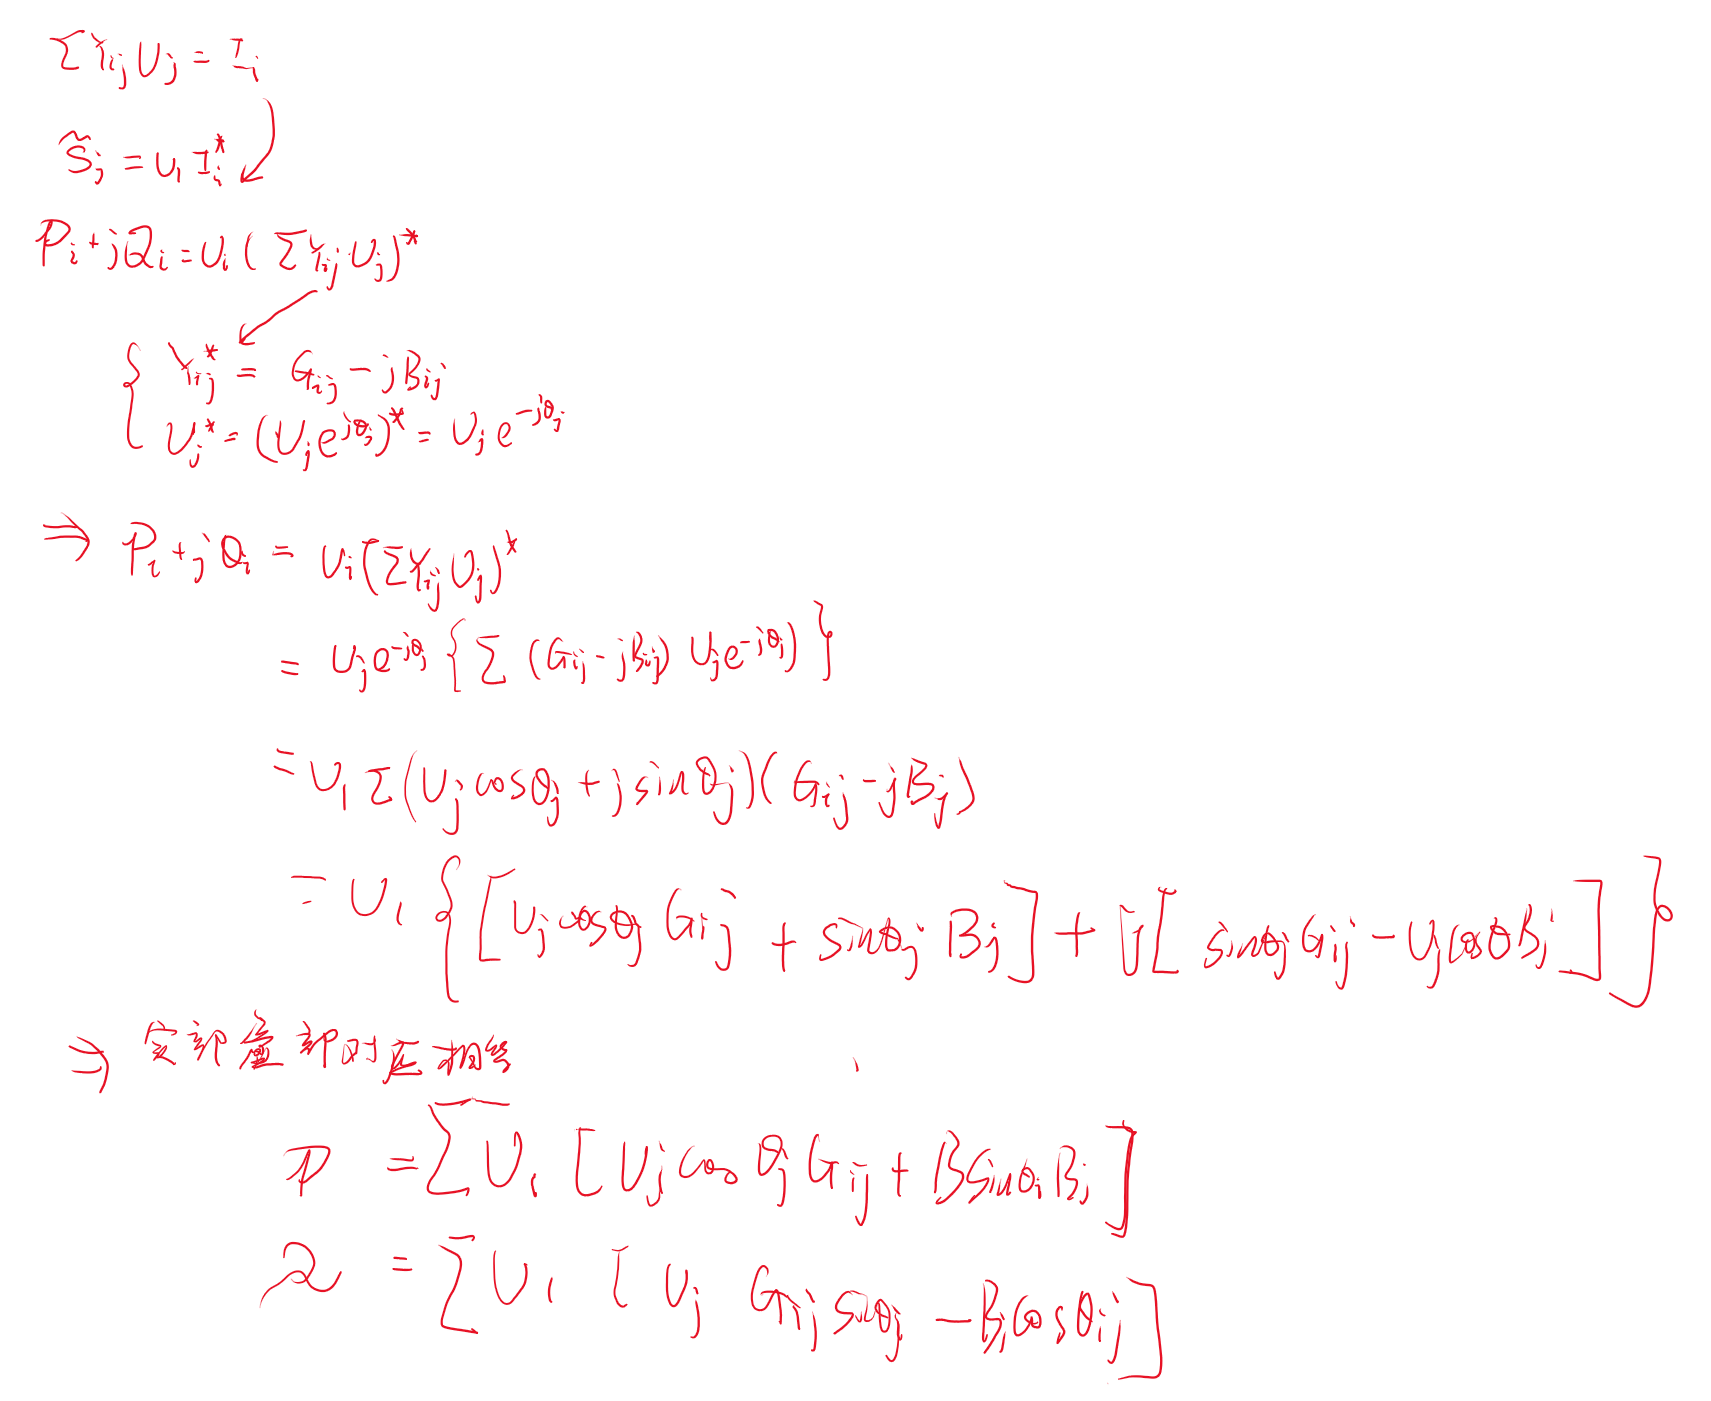 ΣY_ij U_j = I_i
S̃_j = U_i I_i^*
P_i + jQ_i = U_i ( ΣY_ij U_j )^*
{ Y_ij^* = G_ij - jB_ij
U_j^* = (U_j e^{jθ_j})^* = U_j e^{-jθ_j}
⇒ P_i + jQ_i = U_i (ΣY_ij U_j)^*
= U_j e^{-jθ_j} { Σ (G_ij - jB_ij) U_j e^{-jθ_j}) }
= U_i Σ (U_j cosθ_j + j sinθ_j)( G_ij - jB_j )
= U_i { [ U_j cosθ_j G_ij + sinθ_j B_j ] + j[ sinθ_j G_ij - U_j cosθ B_j ] }
⇒ 实部虚部对应相等
P = Σ U_i [ U_j cos θ_j G_ij + B sinθ_i B_j ]
Q = Σ U_i [ U_j G_ij sinθ_j - B_j cosθ_ij ]